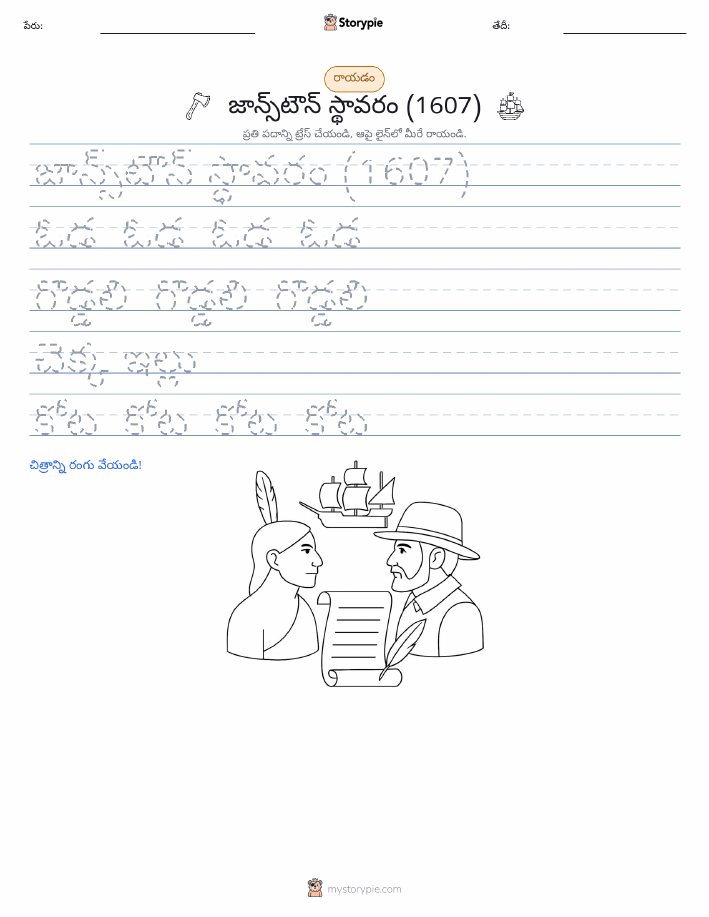 పేరు:
Storypie
తేదీ:
రాయడం
జాన్స్‌టౌన్ స్థావరం (1607)
ప్రతి పదాన్ని ట్రేస్ చేయండి, ఆపై లైన్‌లో మీరే రాయండి.
జాన్స్‌టౌన్ స్థావరం (1607)
ఓడ ఓడ ఓడ ఓడ
గొడ్డలి గొడ్డలి గొడ్డలి
చెక్క ఇల్లు
కోట కోట కోట కోట
చిత్రాన్ని రంగు వేయండి!
mystorypie.com